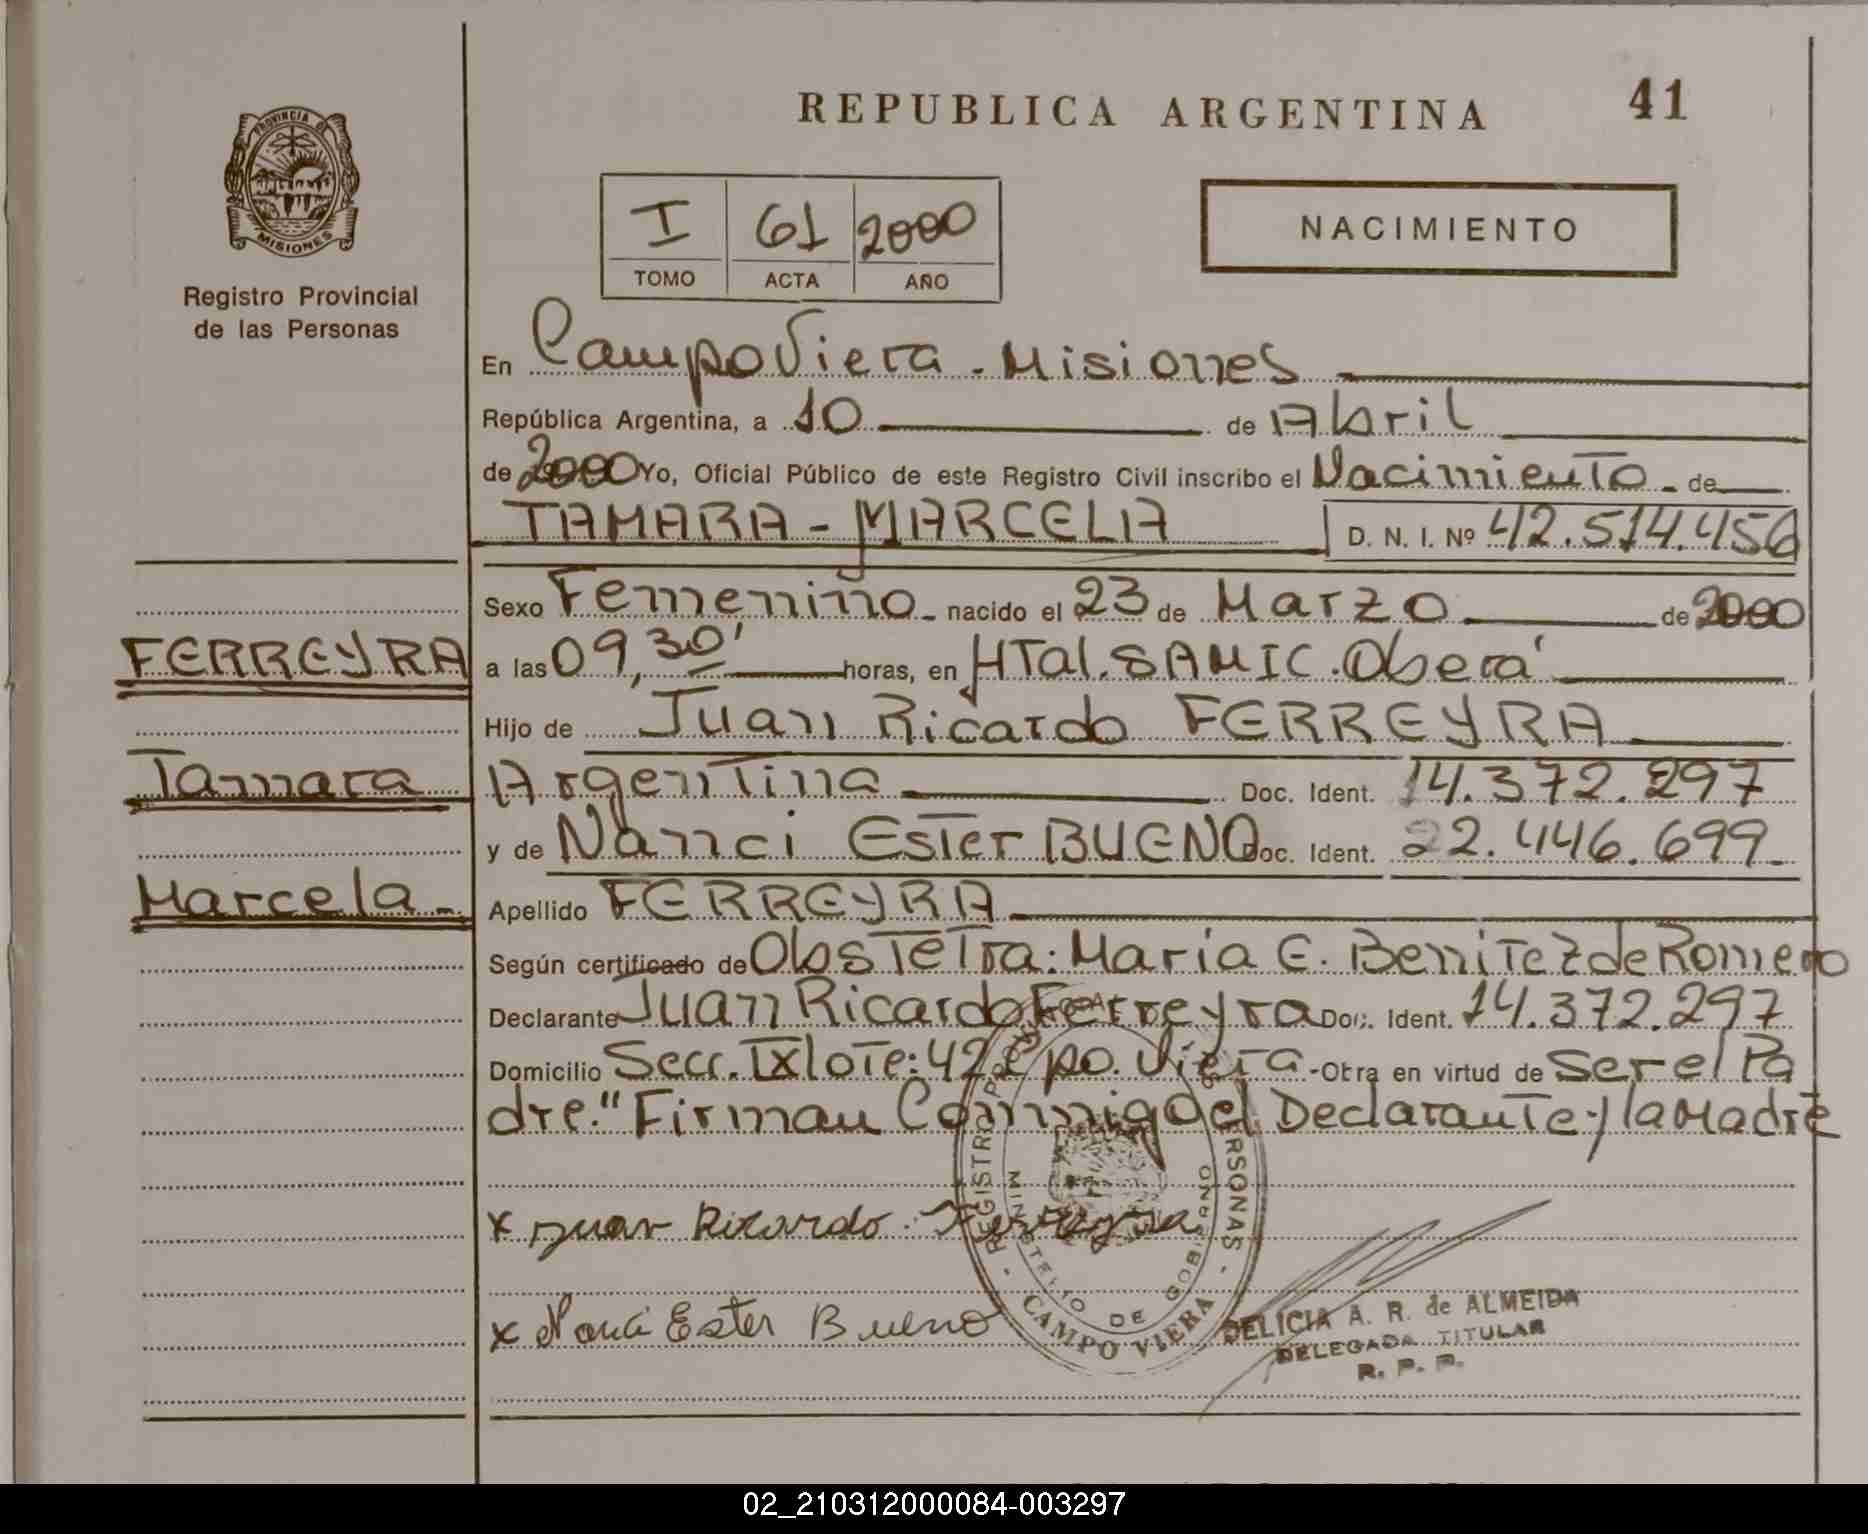 REPUBLICA ARGENTINA
41
PROVINCIA DE
MISIONES
Registro Provincial
de las Personas
I 61 2000
TOMO ACTA AÑO
NACIMIENTO
En Campo Viera - Misiones
República Argentina, a 10 de Abril
de 2000 Yo, Oficial Público de este Registro Civil inscribo el Nacimiento - de
TAMARA - MARCELA D. N. I. Nº 42.514.456
Sexo Femenino - nacido el 23 de Marzo de 2000
FERREYRA
a las 09,30' horas, en HTal. SAMIC. Oberá
Hijo de Juan Ricardo FERREYRA
Tamara
Argentina Doc. Ident. 14.372.297
y de Nanci Ester BUENO Doc. Ident. 22.446.699.
Marcela -
Apellido FERREYRA
Según certificado de Obstetra: Maria E. Benitez de Romero
Declarante Juan Ricardo Ferreyra Doc. Ident. 14.372.297
Domicilio Secc. IX lote: 42 Cpo. Viera - Obra en virtud de Ser el Pa
dre." Firman Conmigo el Declarante y la Madre
x Juan Ricardo Ferreyra
x Ester Bueno
REGISTRO PERSONAS
MINISTERIO DE GOBIERNO
CAMPO VIERA
DELICIA A. R. de ALMEIDA
DELEGADA TITULAR
R. P. P.
02_210312000084-003297